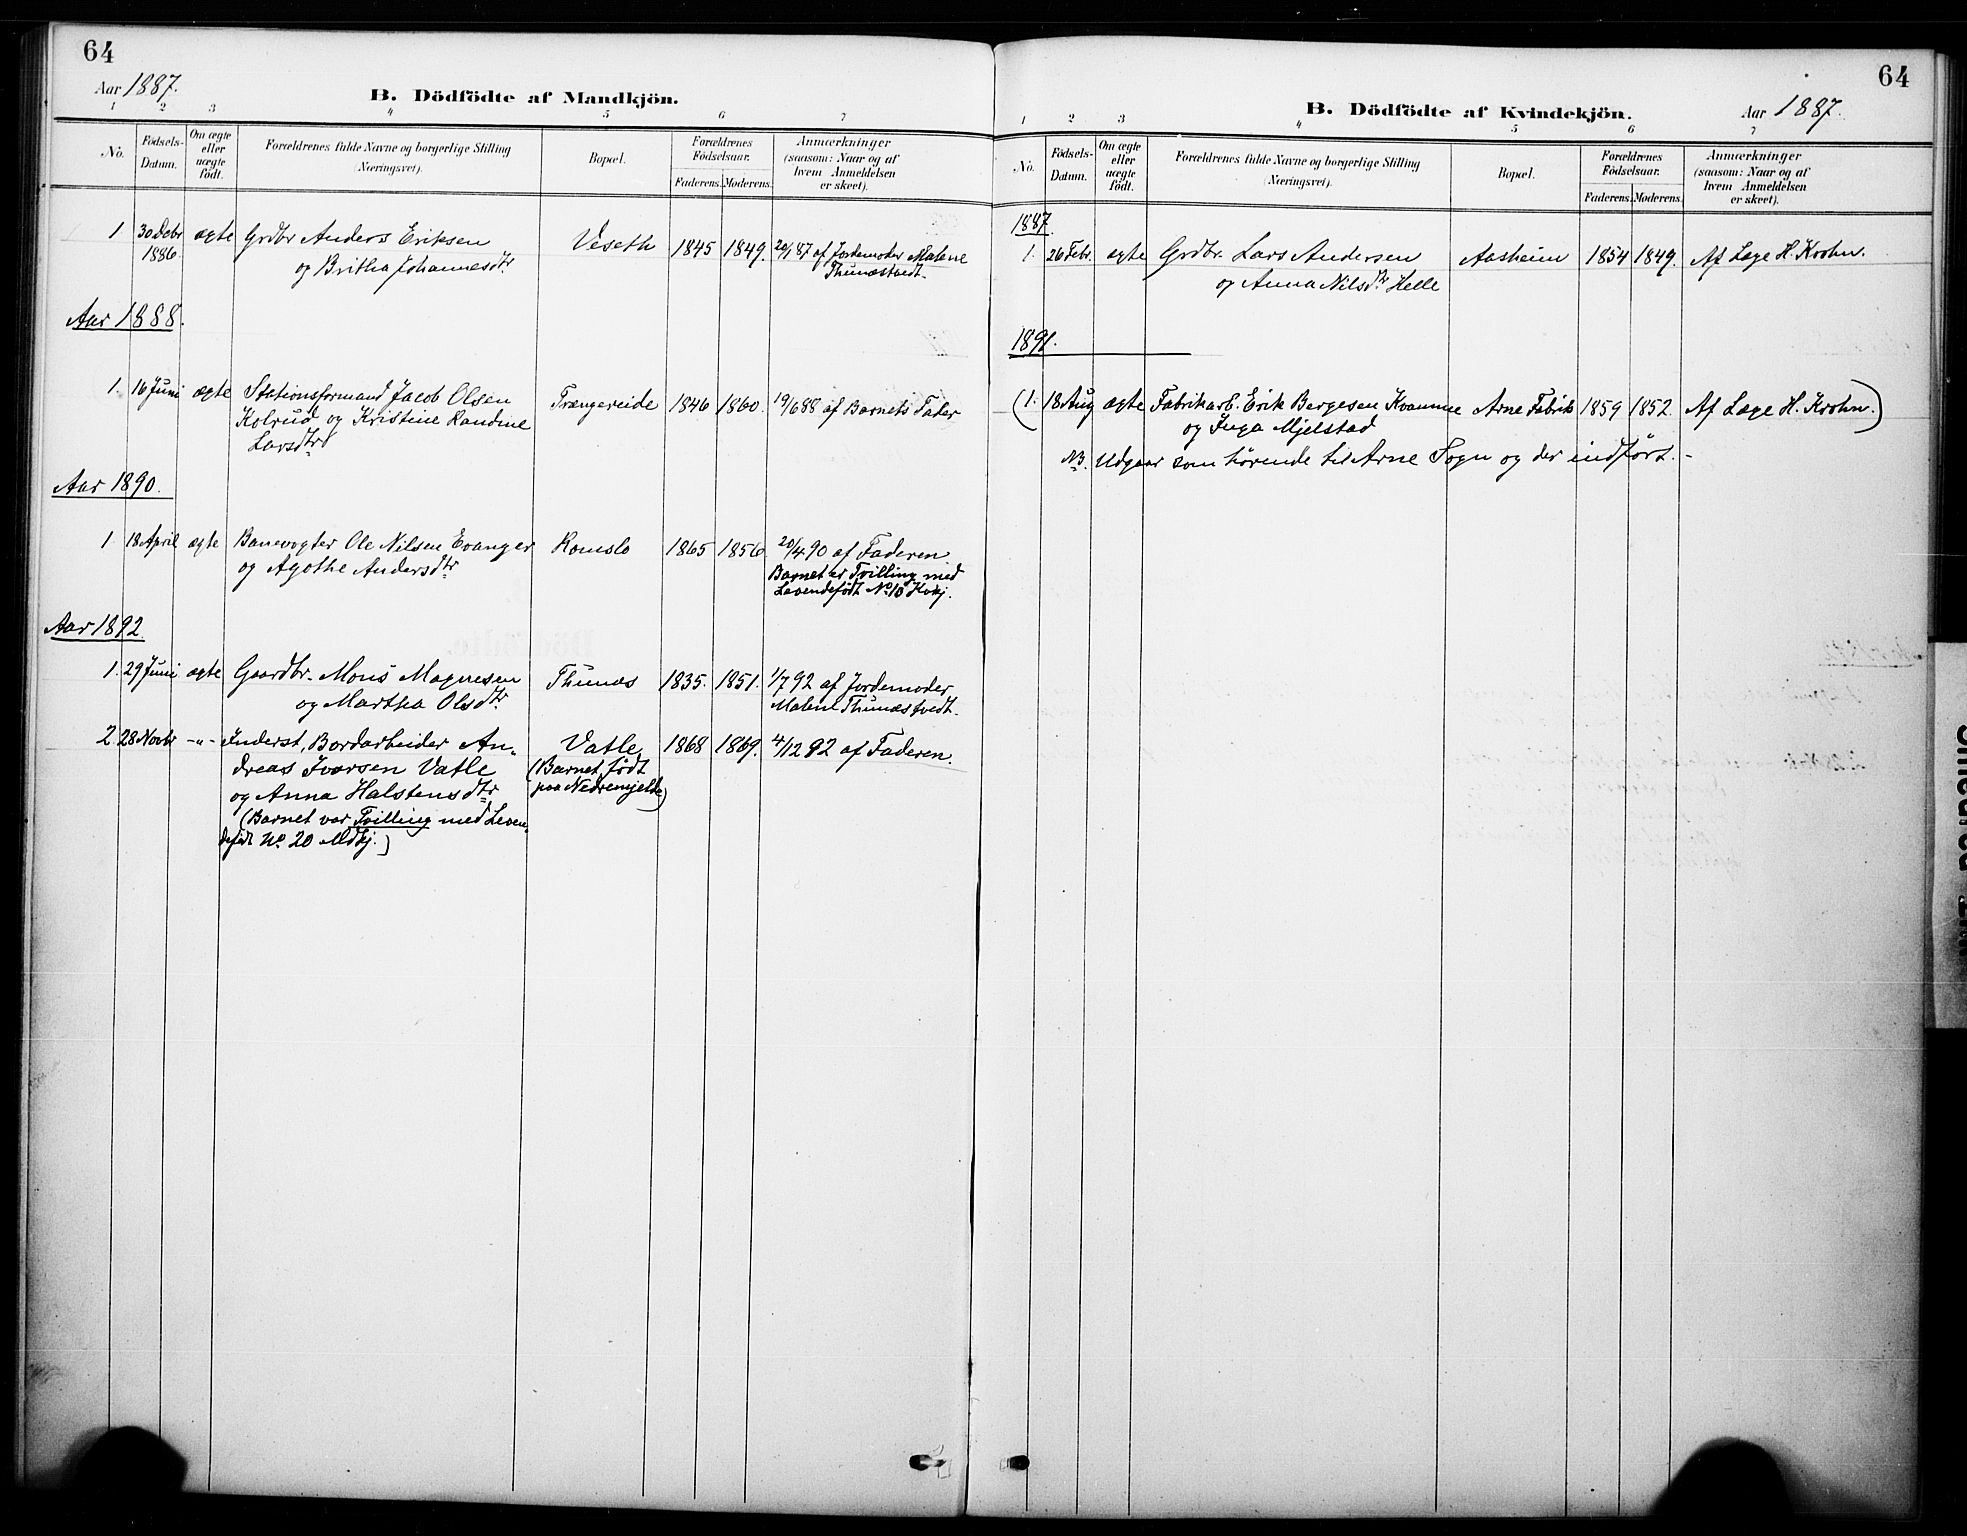 64
Aar 1887.
B. Dödfödte af Mandkjön.
1 2 3 4 5 6 7
No.
Födsels-
Datum.
Om ægte
eller
uægte
født.
Forældrenes fulde Navne og borgerlige Stilling
(Næringsvei).
Bopæl.
Forældrenes
Födselsaar.
Faderens. Moderens.
Anmærkninger
(saasom: Naar og af
hvem Anmeldelsen
er skeet).
1 30 Debr ægte Grdbr Anders Eriksen Veseth 1845 1849. 20/1 87 af Jordemoder Malene
1886. og Britha Johannesdtr Thunæstvedt.
Aar 1888.
1. 16 Juni ægte Stationsformand Jacob Olsen Trængereide 1846 1860. 19/6 88 af Barnets Fader
Kolrud og Kristine Randine
Larsdtr
Aar 1890.
1 18 April ægte Banevogter Ole Nilsen Evanger Romslo 1865 1856 20/4 90 af Faderen
og Agothe Andersdtr Barnet er Tvilling med
Levendefödt No 10 Kvkj.
Aar 1892.
1. 29 Juni ægte Gaardbr. Mons Magnesen Thunæs 1835. 1851. 1/7 92 af Jordemoder
og Martha Olsdtr. Malene Thunæstvedt.
2. 28 Novbr -"- Inderst, Bordarbeider An- Vatle 1868 1869. 4/12 92 af Faderen.
dreas Ivarsen Vatle (Barnet født
og Anna Halstensdtr paa Nedremjelde)
(Barnet var Tvilling med Leven-
defödt No. 20 Mdkj.)
64
B. Dödfödte af Kvindekjön.
Aar 1887.
1 2 3 4 5 6 7
No.
Födsels-
Datum.
Om ægte
eller
uægte
födt.
Forældrenes fulde Navne og borgerlige Stilling
(Næringsvei).
Bopæl.
Forældrenes
Födselsaar.
Faderens. Moderens.
Anmærkninger
(saasom: Naar og af
hvem Anmeldelsen
er skeet).
1887.
1. 26 Febr. ægte Grdbr. Lars Andersen Aasheim 1854 1849. Af Læge H. Krohn.
og Anna Nilsdtr Helle
1891.
(1. 18 Aug ægte Fabrikarb. Erik Bergesen Kvamme Arne Fabrik 1859 1852. Af Læge H. Krohn.)
og Inga Mjelstad
NB. Udgaar som hørende til Arne Sogn og der indført. -